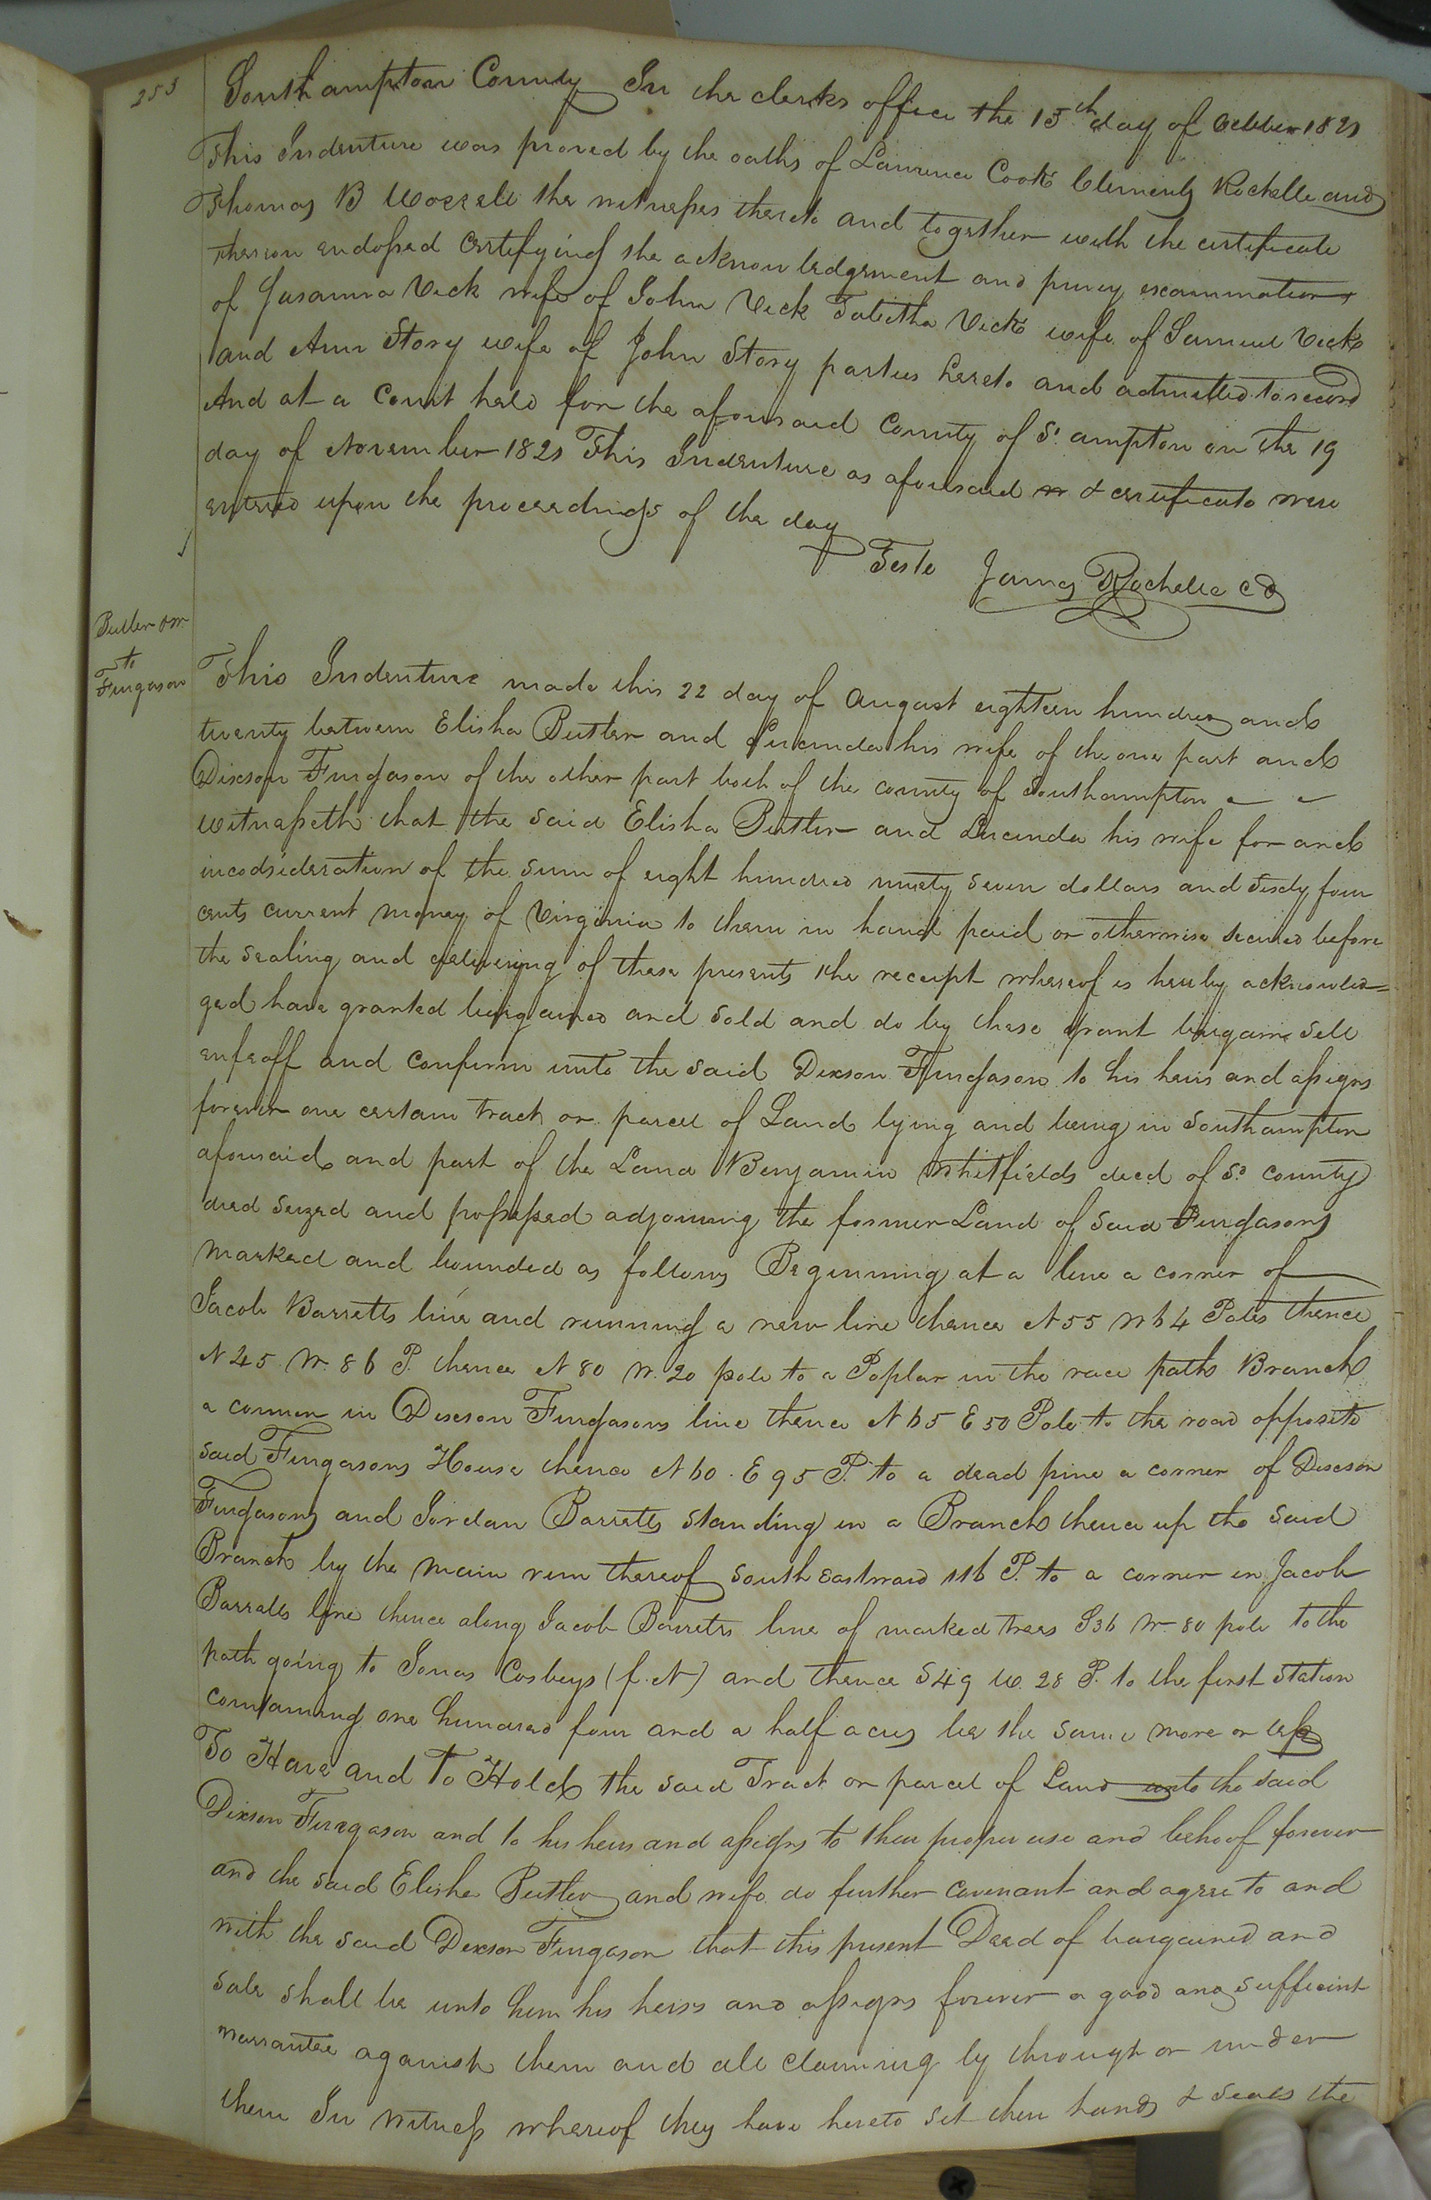 253
Southampton County In the clerks office the 15th day of October 1821
This Indenture was proved by the oaths of Laurence Cook Clements Rochelle and
Thomas B Worrell the witnesses thereto and together with the certificate
thereon endorsed Certifying the acknowledgement and privy examination
of Susanna Vick wife of John Vick Tabitha Vick wife of Samuel Vick
and Ann Story wife of John Story parties hereto and admitted to record
And at a Court held for the aforesaid County of So. ampton on the 19
day of November 1821 This Indenture as aforesaid & certificate were
entered upon the proceedings of the day
Teste James Rochelle CC
Butler & wr.
to
Fingason
This Indenture made this 22 day of August eighteen hundred and
twenty between Elisha Butler and Lucinda his wife of the one part and
Dixson Fingason of the other part both of the county of Southampton
witnesseth that the said Elisha Butler and Lucinda his wife for and
incodsideration of the sum of eight hundred ninety seven dollars and Sixty four
cents current money of Virginia to them in hand paid or otherwise secured before
the sealing and delivering of these presents the receipt whereof is hereby acknowled=
ged have granted bargained and sold and do by these grant bargain sell
enfeoff and confirm unto the said Dixson Fingason to his heirs and assigns
forever one certain track or parcel of Land lying and being in Southampton
aforesaid and part of the Land Benjamin Whitfields decd of sd. county
died seized and possessed adjoining the former Land of said Fingasons
marked and bounded as follows Beginning at a line a corner of
Jacob Barretts line and running a new line thence N 55 W 64 Poles thence
N 45 W. 86 P. thence N 80 W. 20 pole to a Poplar in the race paths Branch
a corner in Dixson Fingasons line thence N 65 E 50 Pole to the road opposite
said Fingasons House thence N 60. E 95 P. to a dead pine a corner of Dixson
Fingasons and Jordan Barretts standing in a Branch thence up the said
Branch by the main run thereof South Eastward 116 P. to a corner in Jacob
Barretts line thence along Jacob Barretts line of marked trees S 36 W 80 pole to the
path going to Jonas Cosbeys (f. N) and thence S 49 W. 28 P. to the first station
containing one hundred four and a half acres be the same more or less
To Have and To Hold the said Tract or parcel of Land unto the said
Dixson Fingason and to his heirs and assigns to their proper use and behoof forever
and the said Elisha Butler and wife do further covenant and agree to and
with the said Dixson Fingason that this present Deed of bargained and
sale shall be unto him his heirs and assigns forever a good and sufficient
warrantee aganish them and all claiming by through or under
them In witness whereof they have hereto set their hands & seals the